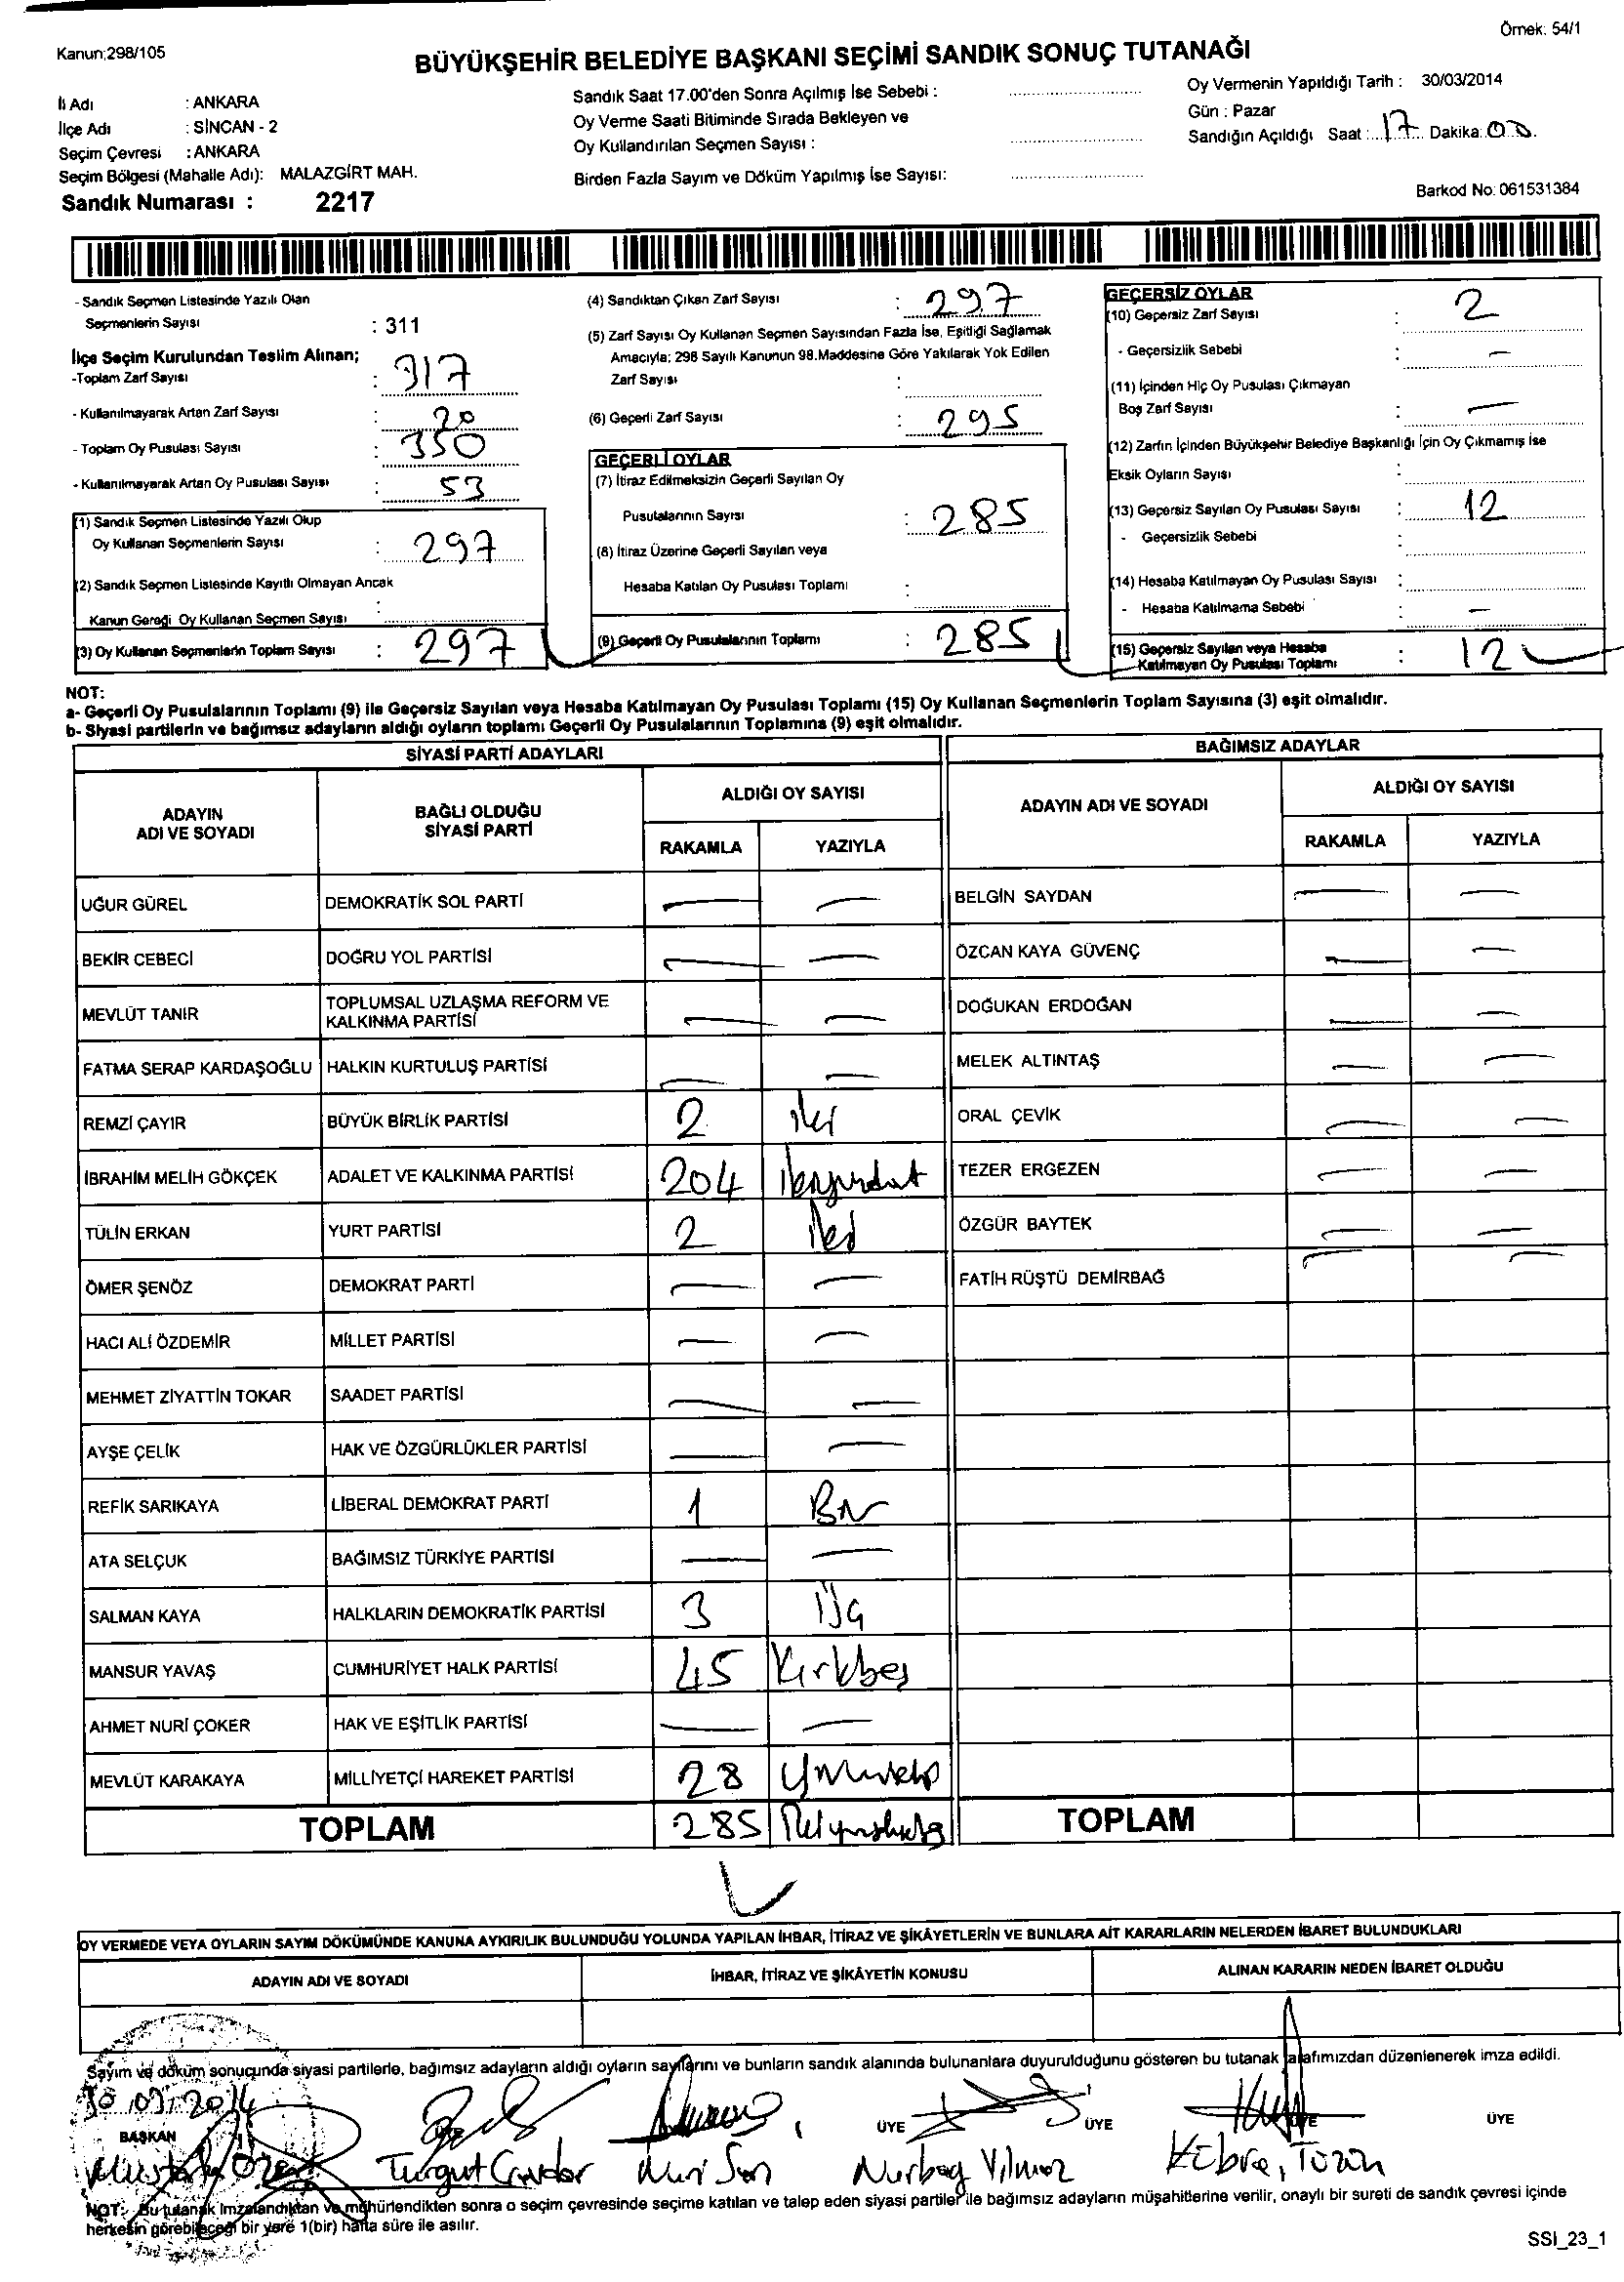 Örnek: 54/1
Kanun;298/105
BÜYÜKŞEHİR BELEDİYE BAŞKANI SEÇİMİ SANDIK SONUÇ TUTANAĞI
İli Adı : ANKARA
İlçe Adı : SİNCAN - 2
Seçim Çevresi : ANKARA
Seçim Bölgesi (Mahalle Adı): MALAZGİRT MAH.
Sandık Numarası : 2217
Sandık Saat 17.00'den Sonra Açılmış İse Sebebi :
Oy Verme Saati Bitiminde Sırada Bekleyen ve
Oy Kullandırılan Seçmen Sayısı :
Birden Fazla Sayım ve Döküm Yapılmış İse Sayısı:
Oy Vermenin Yapıldığı Tarih : 30/03/2014
Gün : Pazar
Sandığın Açıldığı Saat : 17 Dakika: 00
Barkod No: 061531384
- Sandık Seçmen Listesinde Yazılı Olan
Seçmenlerin Sayısı : 311
İlçe Seçim Kurulundan Teslim Alınan;
-Toplam Zarf Sayısı : 317
- Kullanılmayarak Artan Zarf Sayısı : 20
- Toplam Oy Pusulası Sayısı : 350
- Kullanılmayarak Artan Oy Pusulası Sayısı : 53
(1) Sandık Seçmen Listesinde Yazılı Olup
Oy Kullanan Seçmenlerin Sayısı : 297
(2) Sandık Seçmen Listesinde Kayıtlı Olmayan Ancak
Kanun Gereği Oy Kullanan Seçmen Sayısı :
(3) Oy Kullanan Seçmenlerin Toplam Sayısı : 297
(4) Sandıktan Çıkan Zarf Sayısı : 297
(5) Zarf Sayısı Oy Kullanan Seçmen Sayısından Fazla İse, Eşitliği Sağlamak
Amacıyla; 298 Sayılı Kanunun 98.Maddesine Göre Yakılarak Yok Edilen
Zarf Sayısı :
(6) Geçerli Zarf Sayısı : 295
GEÇERLİ OYLAR
(7) İtiraz Edilmeksizin Geçerli Sayılan Oy
Pusulalarının Sayısı : 285
(8) İtiraz Üzerine Geçerli Sayılan veya
Hesaba Katılan Oy Pusulası Toplamı :
(9) Geçerli Oy Pusulalarının Toplamı : 285
GEÇERSİZ OYLAR
(10) Geçersiz Zarf Sayısı : 2
- Geçersizlik Sebebi : —
(11) İçinden Hiç Oy Pusulası Çıkmayan
Boş Zarf Sayısı : —
(12) Zarfın İçinden Büyükşehir Belediye Başkanlığı İçin Oy Çıkmamış İse
Eksik Oyların Sayısı :
(13) Geçersiz Sayılan Oy Pusulası Sayısı : 12
- Geçersizlik Sebebi :
(14) Hesaba Katılmayan Oy Pusulası Sayısı :
- Hesaba Katılmama Sebebi : —
(15) Geçersiz Sayılan veya Hesaba
Katılmayan Oy Pusulası Toplamı : 12
NOT:
a- Geçerli Oy Pusulalarının Toplamı (9) ile Geçersiz Sayılan veya Hesaba Katılmayan Oy Pusulası Toplamı (15) Oy Kullanan Seçmenlerin Toplam Sayısına (3) eşit olmalıdır.
b- Siyasi partilerin ve bağımsız adayların aldığı oyların toplamı Geçerli Oy Pusulalarının Toplamına (9) eşit olmalıdır.
SİYASİ PARTİ ADAYLARI
ADAYIN ADI VE SOYADI BAĞLI OLDUĞU SİYASİ PARTİ ALDIĞI OY SAYISI
RAKAMLA YAZIYLA
UĞUR GÜREL DEMOKRATİK SOL PARTİ — —
BEKİR CEBECİ DOĞRU YOL PARTİSİ — —
MEVLÜT TANIR TOPLUMSAL UZLAŞMA REFORM VE KALKINMA PARTİSİ — —
FATMA SERAP KARDAŞOĞLU HALKIN KURTULUŞ PARTİSİ — —
REMZİ ÇAYIR BÜYÜK BİRLİK PARTİSİ 2 iki
İBRAHİM MELİH GÖKÇEK ADALET VE KALKINMA PARTİSİ 204
TÜLİN ERKAN YURT PARTİSİ 2
ÖMER ŞENÖZ DEMOKRAT PARTİ — —
HACI ALİ ÖZDEMİR MİLLET PARTİSİ — —
MEHMET ZİYATTİN TOKAR SAADET PARTİSİ — —
AYŞE ÇELİK HAK VE ÖZGÜRLÜKLER PARTİSİ — —
REFİK SARIKAYA LİBERAL DEMOKRAT PARTİ 1 Bir
ATA SELÇUK BAĞIMSIZ TÜRKİYE PARTİSİ — —
SALMAN KAYA HALKLARIN DEMOKRATİK PARTİSİ 3 Üç
MANSUR YAVAŞ CUMHURİYET HALK PARTİSİ 45 Kırkbeş
AHMET NURİ ÇOKER HAK VE EŞİTLİK PARTİSİ — —
MEVLÜT KARAKAYA MİLLİYETÇİ HAREKET PARTİSİ 28
TOPLAM 285
BAĞIMSIZ ADAYLAR
ADAYIN ADI VE SOYADI ALDIĞI OY SAYISI
RAKAMLA YAZIYLA
BELGİN SAYDAN — —
ÖZCAN KAYA GÜVENÇ — —
DOĞUKAN ERDOĞAN — —
MELEK ALTINTAŞ — —
ORAL ÇEVİK — —
TEZER ERGEZEN — —
ÖZGÜR BAYTEK — —
FATİH RÜŞTÜ DEMİRBAĞ — —
TOPLAM
OY VERMEDE VEYA OYLARIN SAYIM DÖKÜMÜNDE KANUNA AYKIRILIK BULUNDUĞU YOLUNDA YAPILAN İHBAR, İTİRAZ VE ŞİKÂYETLERİN VE BUNLARA AİT KARARLARIN NELERDEN İBARET BULUNDUKLARI
ADAYIN ADI VE SOYADI İHBAR, İTİRAZ VE ŞİKÂYETİN KONUSU ALINAN KARARIN NEDEN İBARET OLDUĞU
Sayım ve döküm sonucunda siyasi partilerle, bağımsız adayların aldığı oyların sayılarını ve bunların sandık alanında bulunanlara duyurulduğunu gösteren bu tutanak tarafımızdan düzenlenerek imza edildi.
30.03.2014
BAŞKAN ÜYE ÜYE ÜYE ÜYE
Mustafa Turgut Nuri Nurbay Yılmaz Kübra
NOT: Bu tutanak imzalandıktan ve mühürlendikten sonra o seçim çevresinde seçime katılan ve talep eden siyasi partiler ile bağımsız adayların müşahitlerine verilir, onaylı bir sureti de sandık çevresi içinde
herkesin görebileceği bir yere 1(bir) hafta süre ile asılır.
SSI_23_1